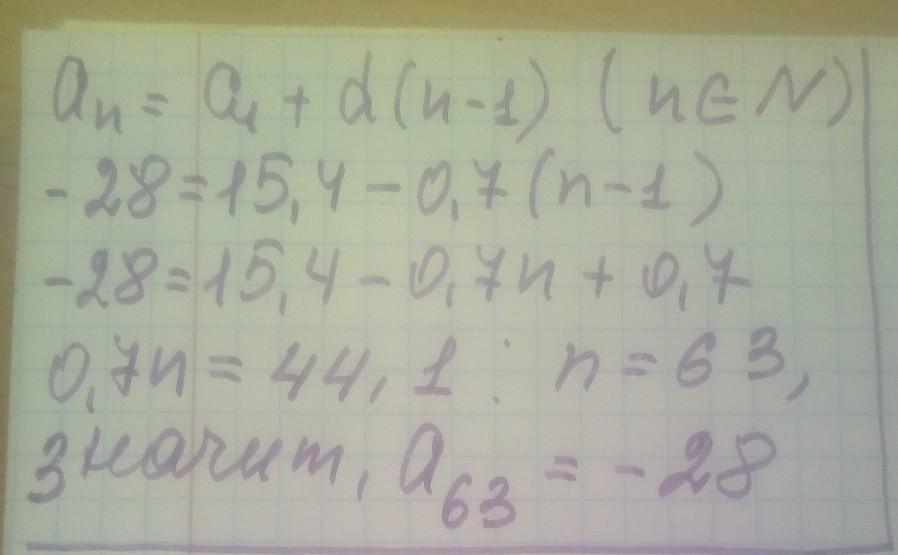 aₙ = a₁ + d(n-1) (n∈N)
-28=15,4-0,7(n-1)
-28=15,4-0,7n+0,7
0,7n=44,1; n=63,
значит, a₆₃=-28